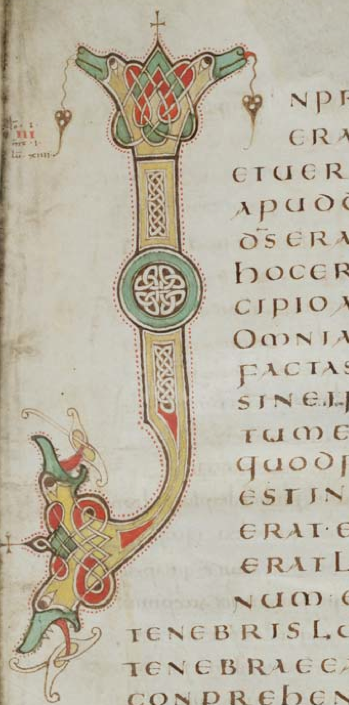 NPR
ERA
ETUER
APUDD
DSERA
hOCER
CIPIOA
OMNIA
FACTAS
SINEIP
TUME
quodf
ESTIN
ERAT·E
ERATL
NUM·E
TENEBRISLU
TENEBRAEEA
CONPREHEN